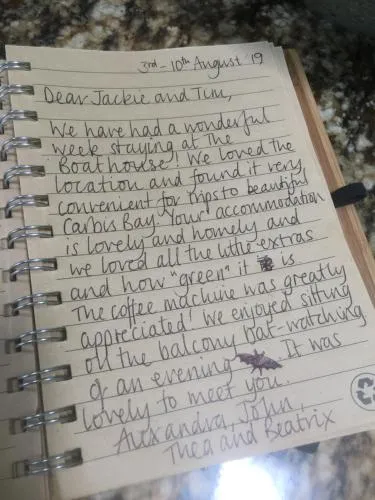 3rd - 10th August '19
Dear Jackie and Tim,
We have had a wonderful
week staying at the
Boathouse! We loved the
location and found it very
convenient for trips to beautiful
Carbis Bay. Your accommodation
is lovely and homely and
we loved all the little extras
and how "green" it is
The coffee machine was greatly
appreciated! We enjoyed sitting
on the balcony bat-watching
of an evening. It was
lovely to meet you.
Alexandra, John,
Thea and Beatrix